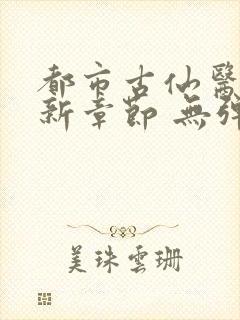 都市古仙醫
新章節 無彈
美珠雲珊